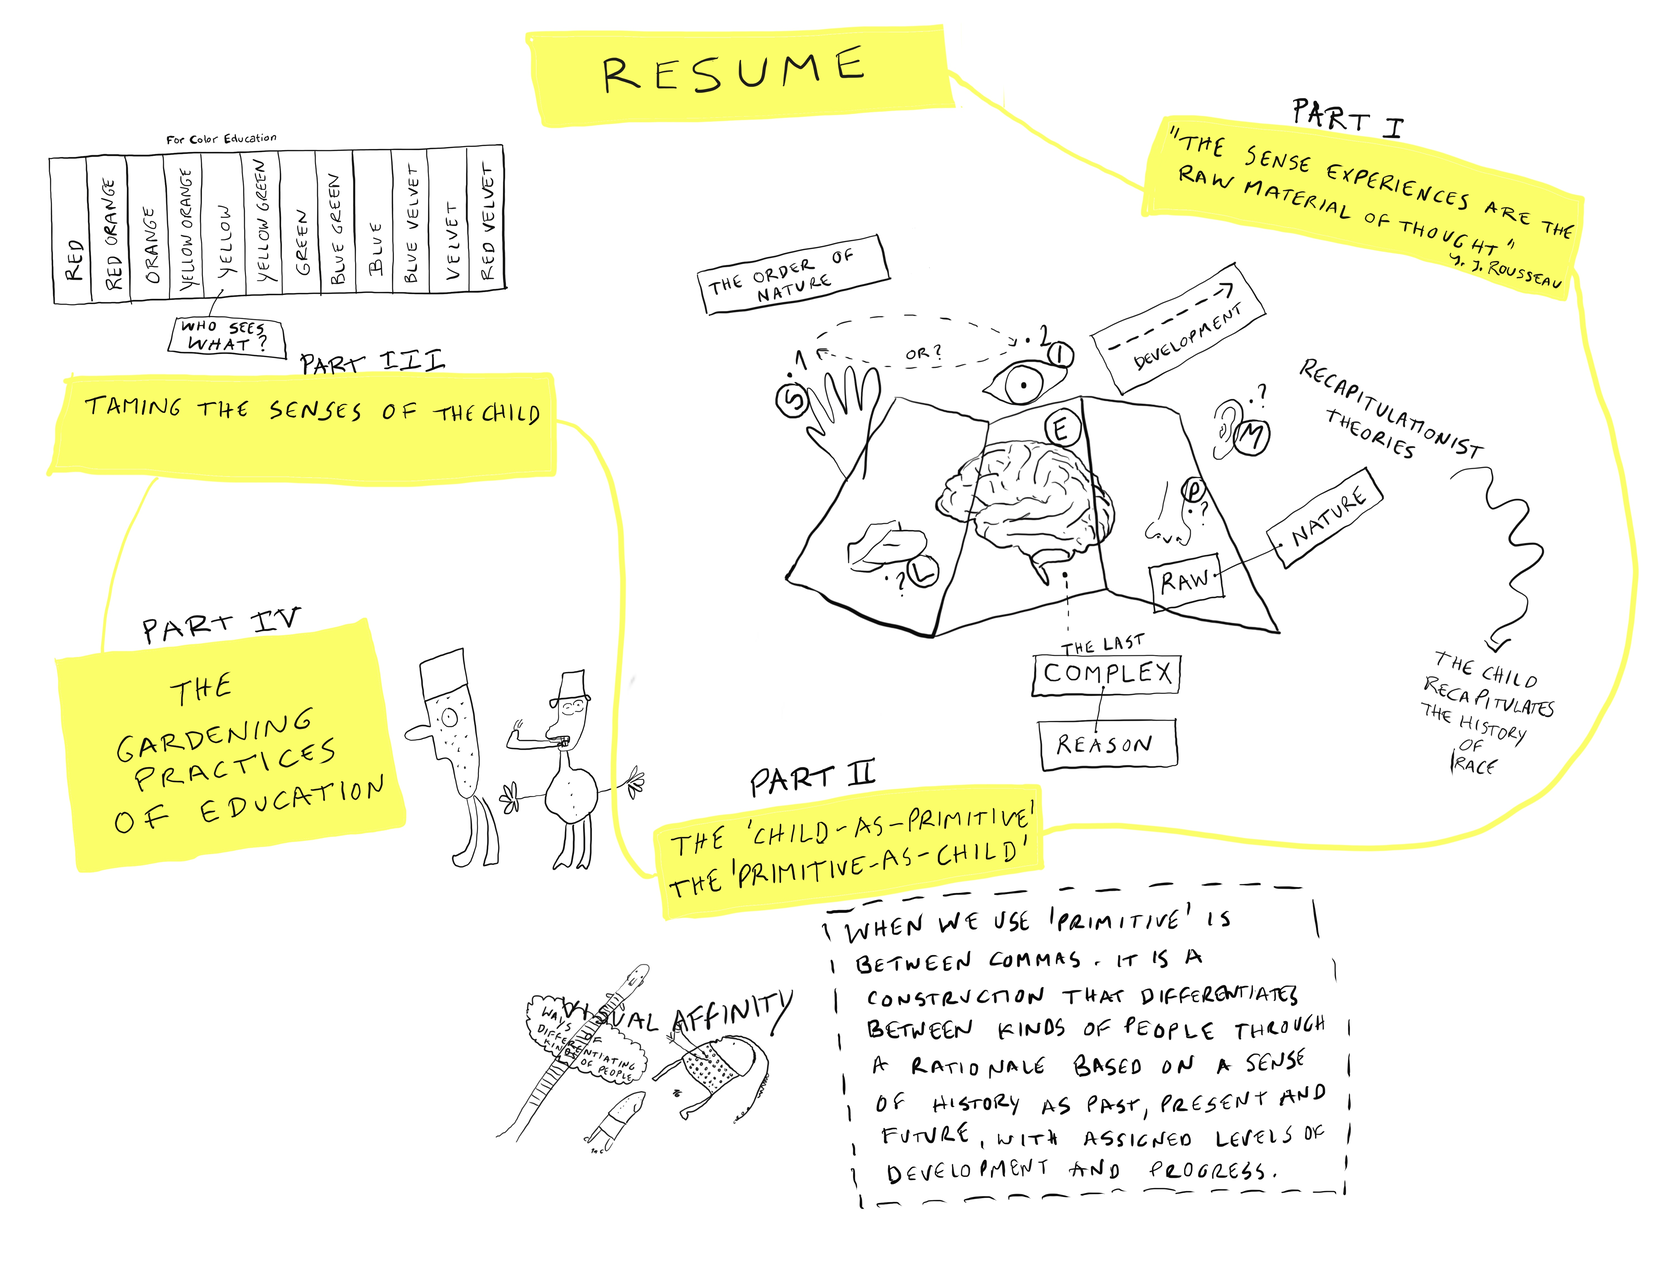 RESUME
PART I
"THE SENSE EXPERIENCES ARE THE
RAW MATERIAL OF THOUGHT"
J. J. ROUSSEAU
THE ORDER OF
NATURE
DEVELOPMENT
.1
OR?
.2
S
I
E
.?
M
P
.?
.?
L
RAW
NATURE
THE LAST
COMPLEX
REASON
RECAPITULATIONIST
THEORIES
THE CHILD
RECAPITULATES
THE HISTORY
OF
RACE
PART II
THE 'CHILD-AS-PRIMITIVE'
THE 'PRIMITIVE-AS-CHILD'
WHEN WE USE 'PRIMITIVE' IS
BETWEEN COMMAS. IT IS A
CONSTRUCTION THAT DIFFERENTIATES
BETWEEN KINDS OF PEOPLE THROUGH
A RATIONALE BASED ON A SENSE
OF HISTORY AS PAST, PRESENT AND
FUTURE, WITH ASSIGNED LEVELS OF
DEVELOPMENT AND PROGRESS.
VISUAL AFFINITY
WAYS OF
DIFFERENTIATING
KINDS OF PEOPLE
For Color Education
RED
RED ORANGE
ORANGE
YELLOW ORANGE
YELLOW
YELLOW GREEN
GREEN
BLUE GREEN
BLUE
BLUE VELVET
VELVET
RED VELVET
WHO SEES
WHAT?
PART III
TAMING THE SENSES OF THE CHILD
PART IV
THE
GARDENING
PRACTICES
OF EDUCATION